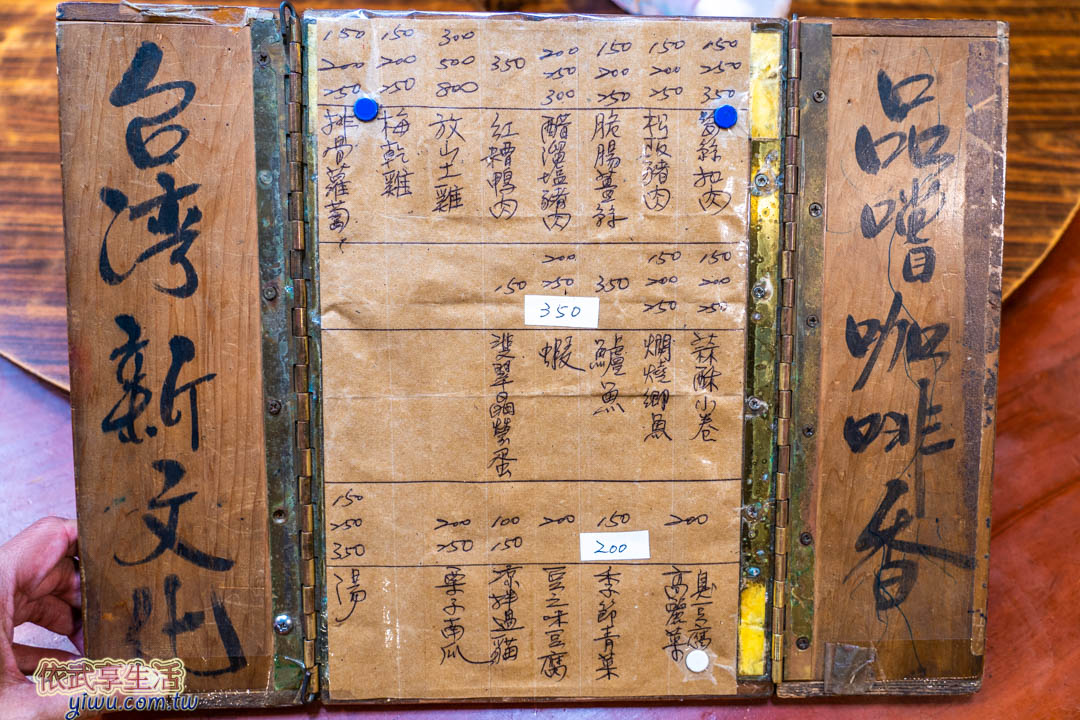 品嚐咖啡香
150
250
350
筍絲扣肉
150
200
250
松阪豬肉
150
200
250
脆腸薑絲
200
250
300
醋溜塩豬肉
350
紅糟鴨肉
300
500
800
放山土雞
150
200
250
梅乾雞
150
200
250
排骨蘿蔔
150
200
250
蒜酥小卷
150
200
250
燜燒鯽魚
350
鱸魚
200
250
350
蝦
150
雙翠晶瑩蛋
200
臭豆腐
高麗菜
150
200
季節青菜
200
豆之味豆腐
100
150
涼拌過貓
200
250
栗子南瓜
150
250
350
湯
台湾新文化
依武享生活
yiwu.com.tw